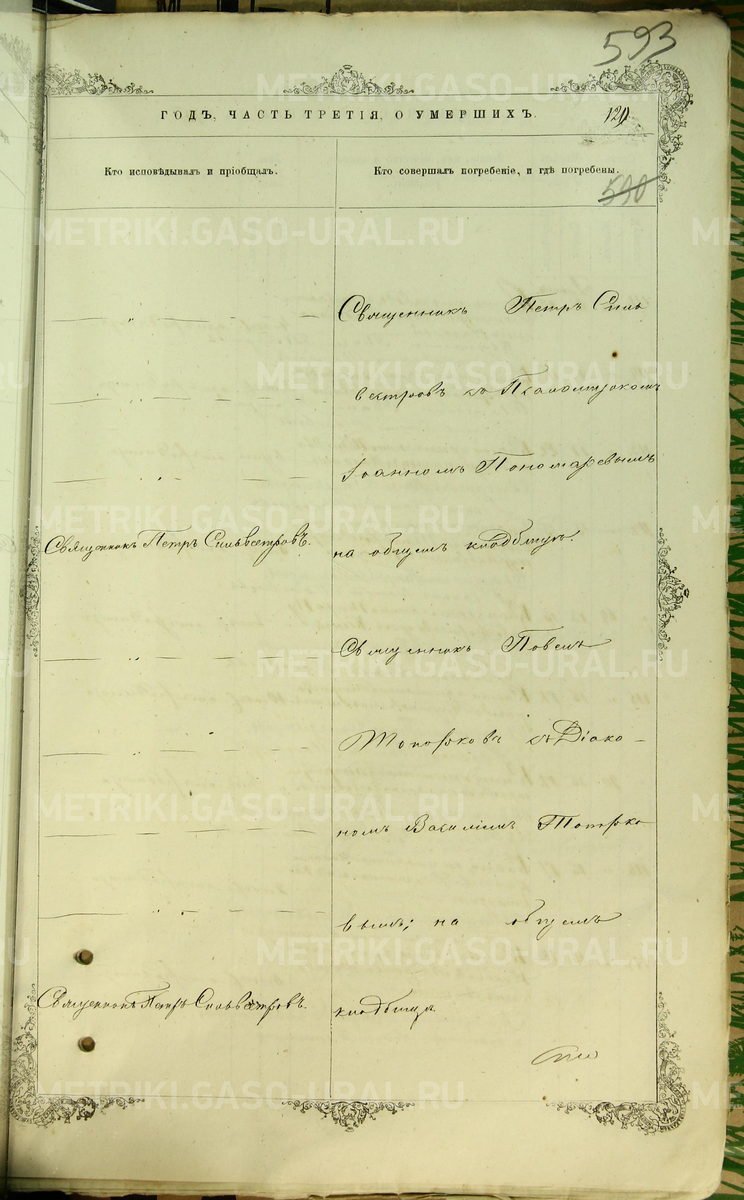 593
ГОДЪ, ЧАСТЬ ТРЕТІЯ, О УМЕРШИХЪ.
129
Кто исповѣдывалъ и пріобщалъ.
Кто совершалъ погребеніе, и гдѣ погребены.
590
METRIKI.GASO-URAL.RU
Священникъ Петръ Силь
вестровъ съ Псаломщикомъ
Іоанномъ Пономаревымъ
Священникъ Петръ Сильвестровъ.
на общемъ кладбищѣ.
Священникъ Павелъ
Топорковъ съ Діако-
номъ Василіемъ Топорко
вымъ; на общемъ
Священникъ Петръ Сильвестровъ.
кладбищѣ.